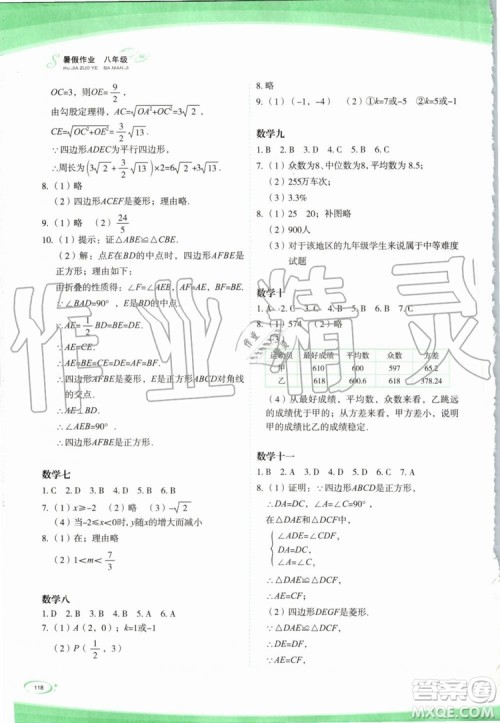 暑假作业 八年级
SHUJIA ZUO YE BA NIAN JI
OC=3，则OE=9/2
由勾股定理得，AC=√(OA²+OC²)=3√2
CE=√(OC²+OE²)=3/2√13
∵四边形ADEC为平行四边形，
∴周长为(3√2+3/2√13)×2=6√2+3√13
8.（1）略
（2）四边形ACEF是菱形；理由略.
9.（1）略 （2）24/5
10.（1）提示：证△ABE≌△DBE
（2）解：四边形AFBE是菱形；理由如下：
∵E是BD的中点，四边形AFBE是平行四边形
∵∠BAD=90°，E为BD的中点，
∴AE=1/2BD=BE=DE.
∴AE=CE.
∴AE=BE=CE=DE.
∴E是平行四边形ABCD对角线
的交点.
∴AE⊥BD.
∴∠AEB=90°
∴四边形AFBE是菱形.
数学七
1. C 2. D 3. D 4. B 5. C 6. D
7.（1）x≥-2 （2）略 （3）略
（4）当-2≤x＜0时, y随x的增大而减小
8.（1）略
（2）1＜m＜7/3
数学八
1. D 2. B 3. B 4. D 5. D 6. A
7.（1）A（2，0）；k=1或-1
（2）P（1/2，3）
8. 略
9.（1）（-1，-4） （2）①k=7或-5 ②k=4或-5
数学九
1. B 2. D 3. D 4. C 5. B 6. A
7.（1）众数为8, 中位数为8, 平均数为8.5；
（2）255万车次；
（3）3.3%
8.（1）25 20；补图略
（2）900人
（3）对于该地区的九年级学生来说属于中等难度
试题
数学十
1. A 2. C 3. C 4. D
8.（1）574 （2）
（3）
运动员 最好成绩 平均数 众数 方差
甲 610 600 597 65.2
乙 618 600.6 618 378.24
（4）从最好成绩，平均数，众数来说，乙跳远
的成绩优于甲的；从方差来说，甲方差小，甲的
成绩比乙的成绩稳定.
数学十一
1. B 2. C 3. B 4. A 5. C 6. D 7. C
8.（1）证明：∵四边形ABCD是正方形，
∴DA=DC，∠A=∠C=90°，
在△DAE和△DCF中，
∠ADE=∠CDF，
DA=DC，
∠A=∠C，
∴△DAE≌△DCF，
∴AE=CF；
（2）四边形DEGF是菱形.
∵△DAE≌△DCF，
∴DE=DF，
∵四边形ABCD是正方形，
∴AB=BC，
∵AE=CF，
118
作业精灵
答案圈
MXQE.COM